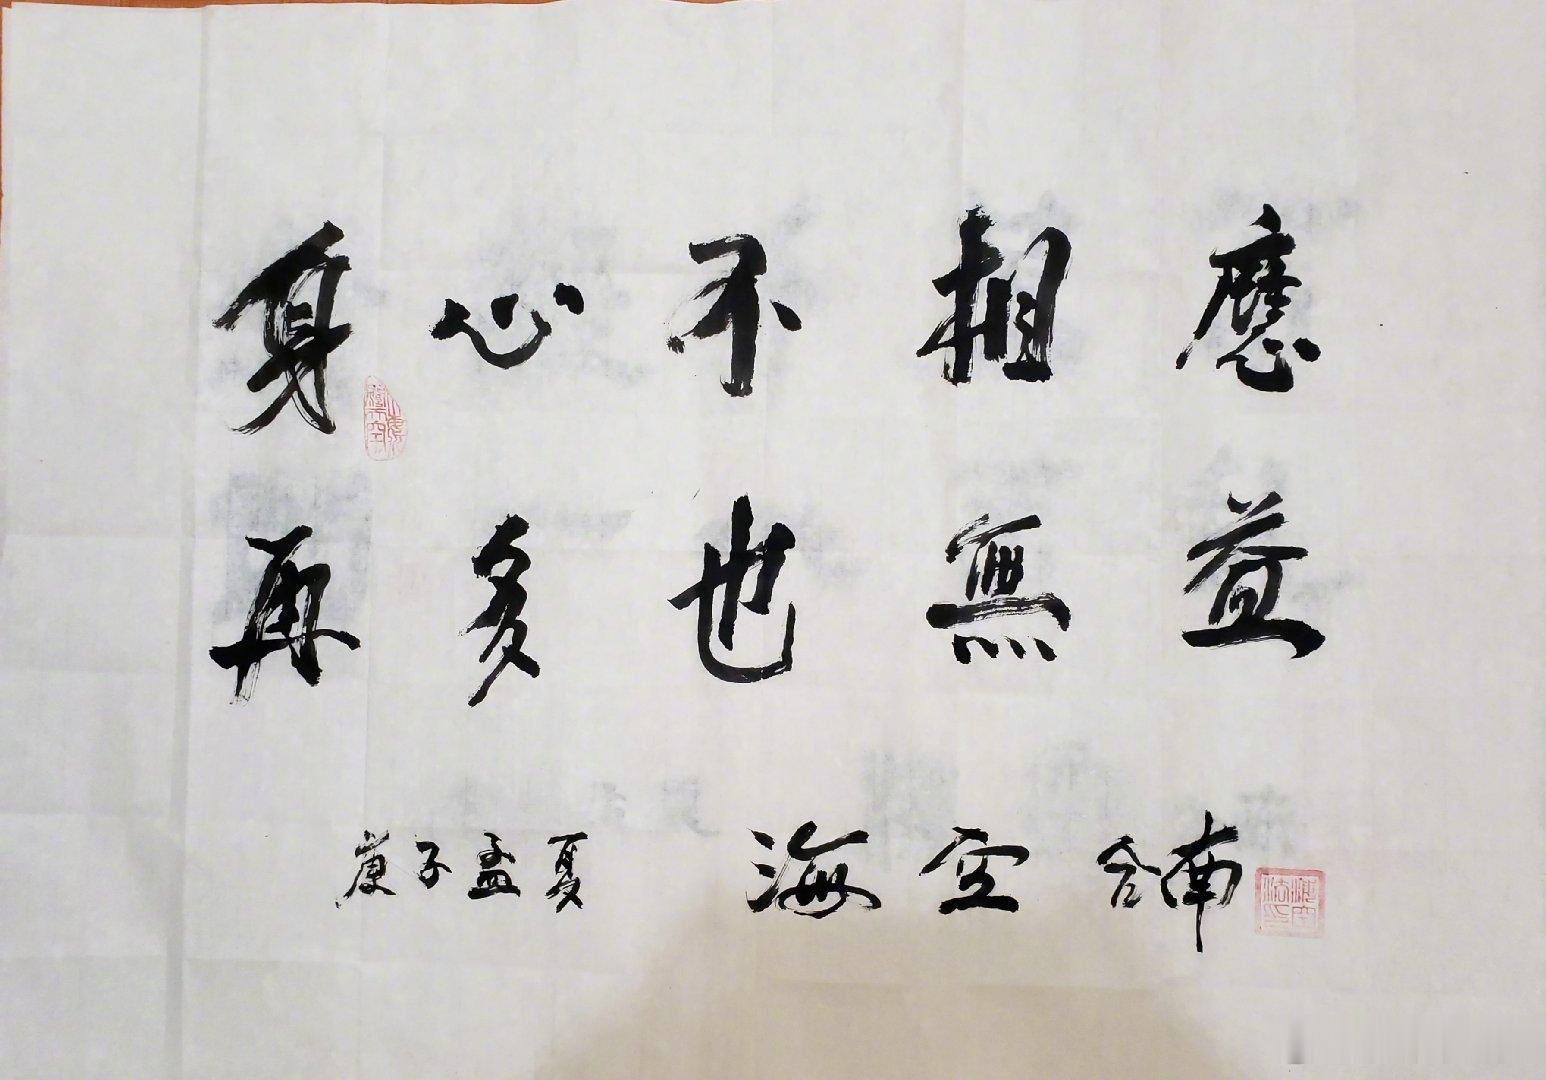 身心不相應
再多也無益
庚子孟夏 海空 合南